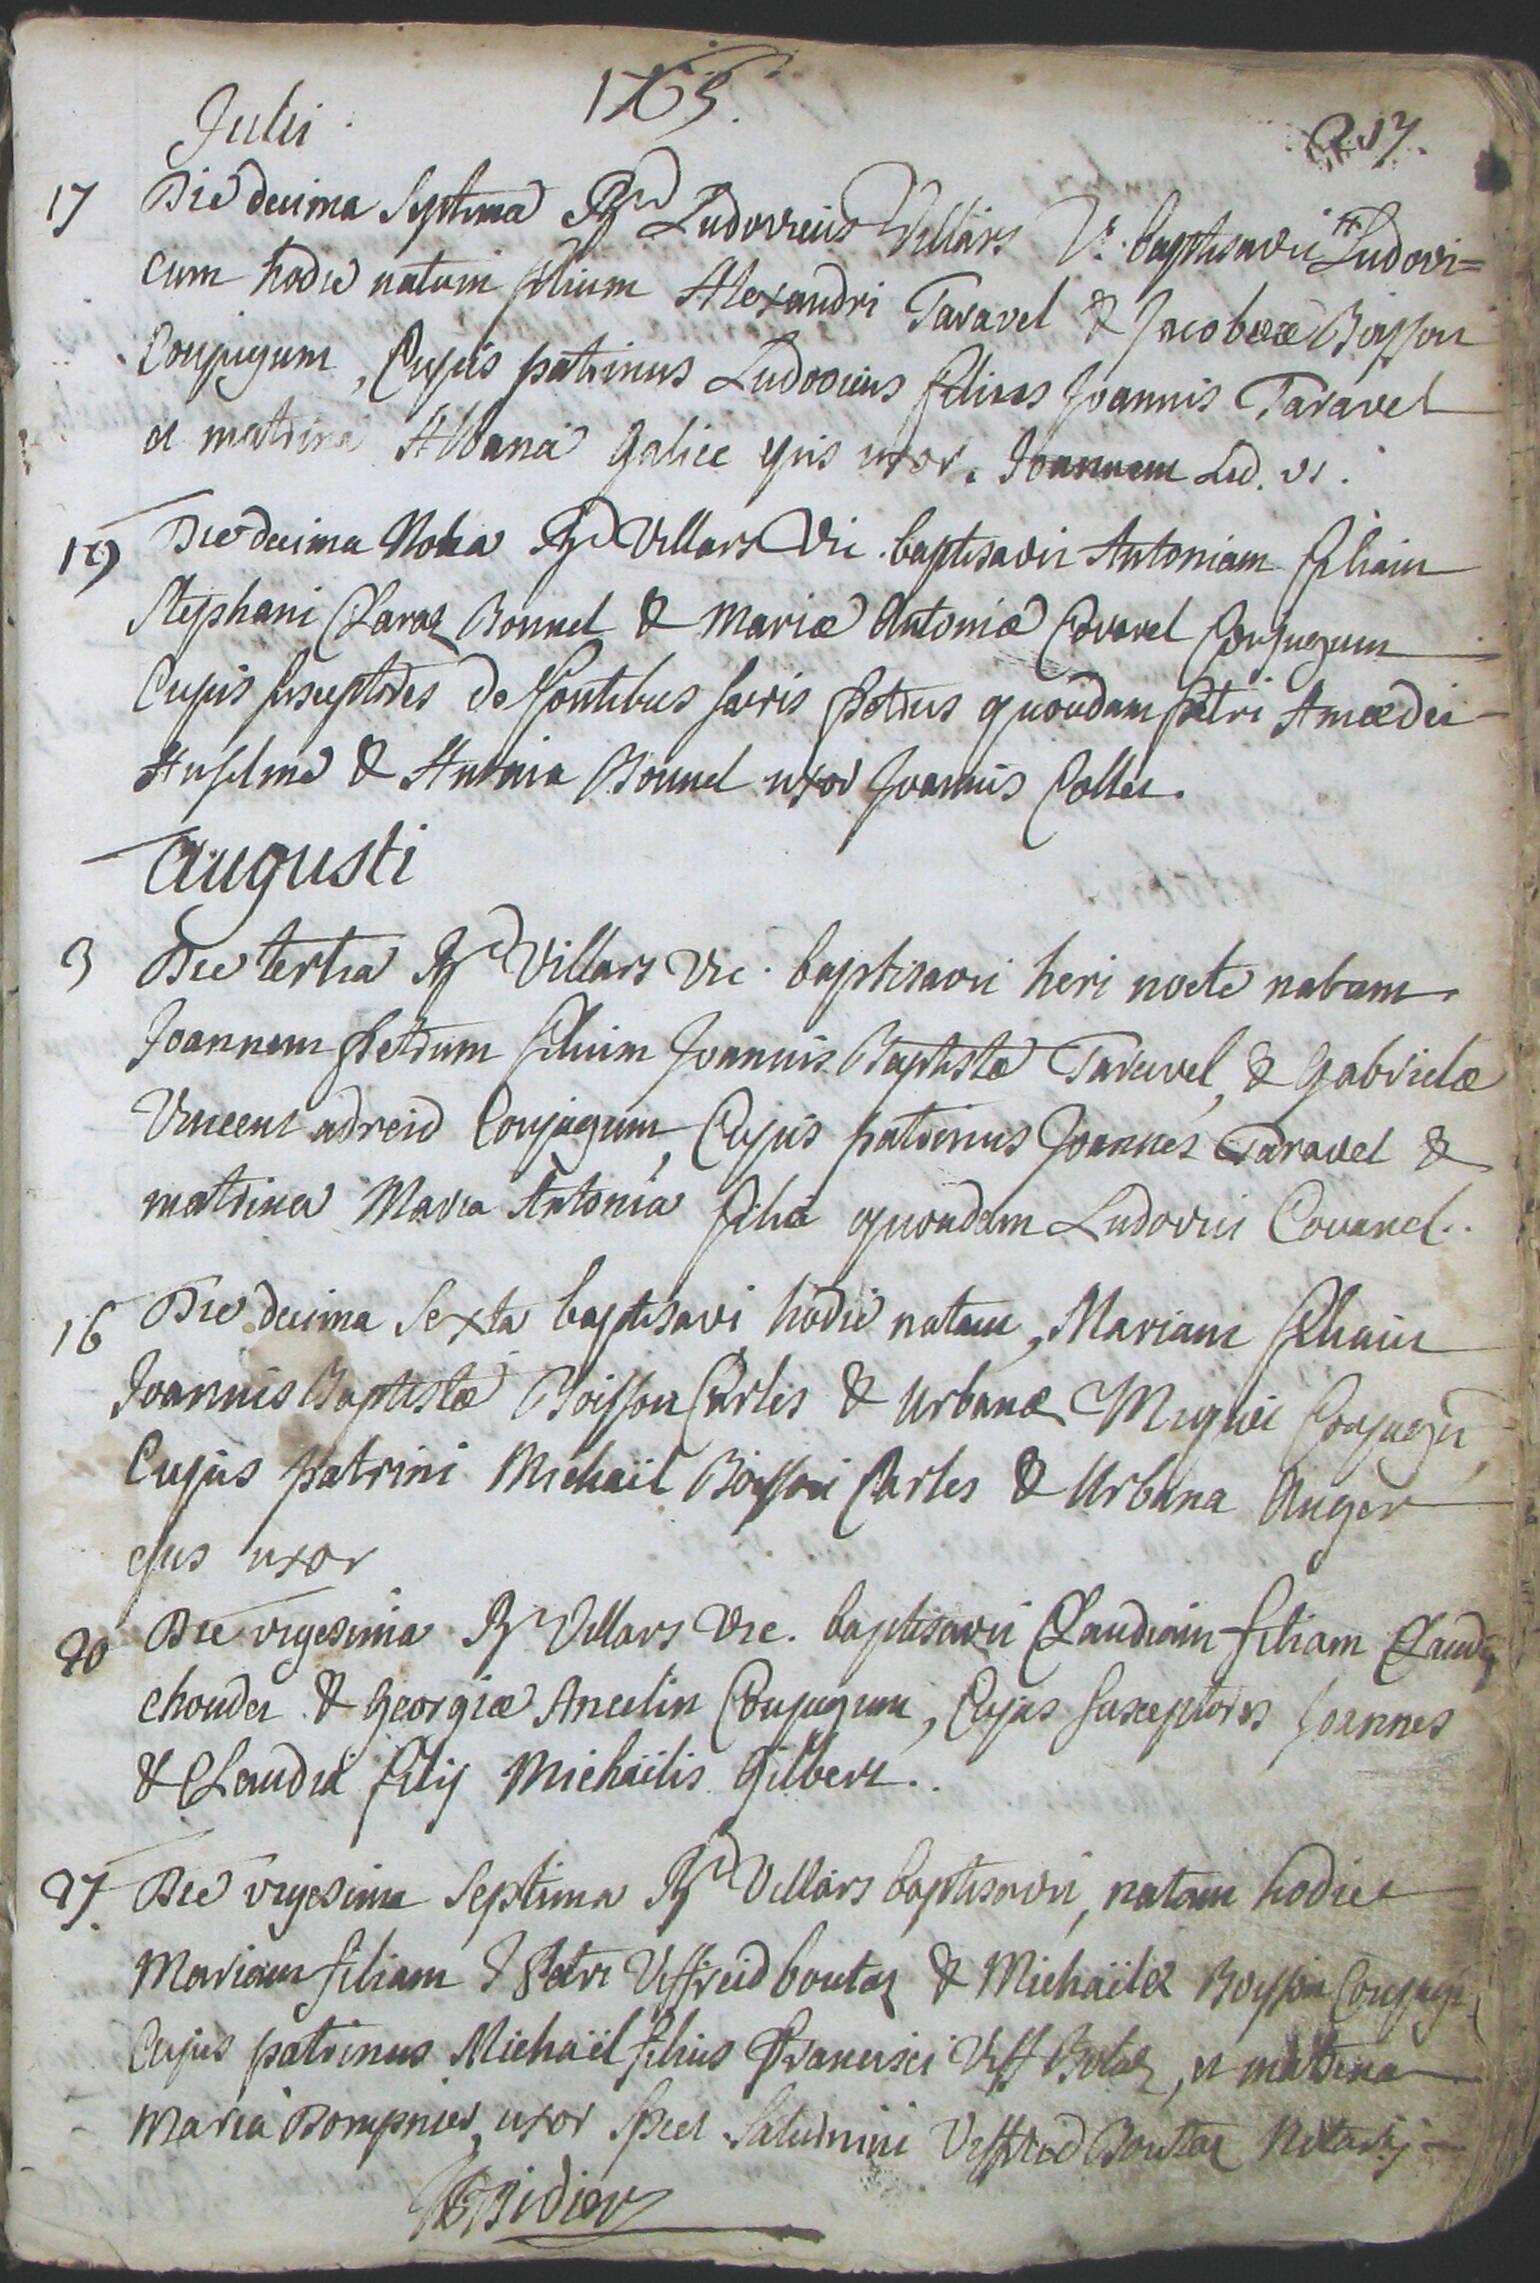 1765.
Julii
217.
17 Die decima Septima Rd Ludovicus Villars V. baptisavit # Ludovi=
cum hodie natum filium Alexandri Taravel & Jacobeæ Boisson
Conjugum, Cujus patrinus Ludovicus filius Joannis Taravel
et matrina Albana Galice ejus uxor. Joannem Lud. vs.
19 Die decima Nona Rd Villars Vic. baptisavit Antoniam filiam
Stephani Claraz Bonnel & Mariæ Antoniæ Covarel Conjugum
Cujus susceptores de fontibus sacris Petrus quondam Petri Amædei
Anselme & Antonia Bonnel uxor Joannis Collet.
Augusti
3 Die tertia Rd Villars Vic. baptisavit heri nocte natum
Joannem Petrum filium Joannis Baptistæ Taravel, & Gabrielæ
Vincent adreid Conjugum, Cujus patrinus Joannes Taravel &
matrina Maria Antonia filia quondam Ludovici Covarel..
16 Die decima Sexta baptisavi hodie natam, Mariam filiam
Joannis Baptistæ Boisson Carles & Urbanæ Mugnie Conjugū
Cujus patrini Michaël Boisson Carles & Urbana Auger
ejus uxor
20 Die vigesima Rd Villars Vic. baptisavit Claudiam filiam Claudij
choudet & Georgiæ Ancelin Conjugum, Cujus susceptores Joannes
& Claudia filij Michaëlis Gilbert..
27. Die vigesima Septima Rd Villars baptisavit, natam hodie
Mariam filiam J Petri Uffreid boutaz & Michaëlæ Boisson Conjugū,
Cujus patrinus Michaël filius Francisci Uff Botaz, et matrina
Maria Dompnier, uxor Spect Saturnini Uffreid Boutaz Notarij
Didier